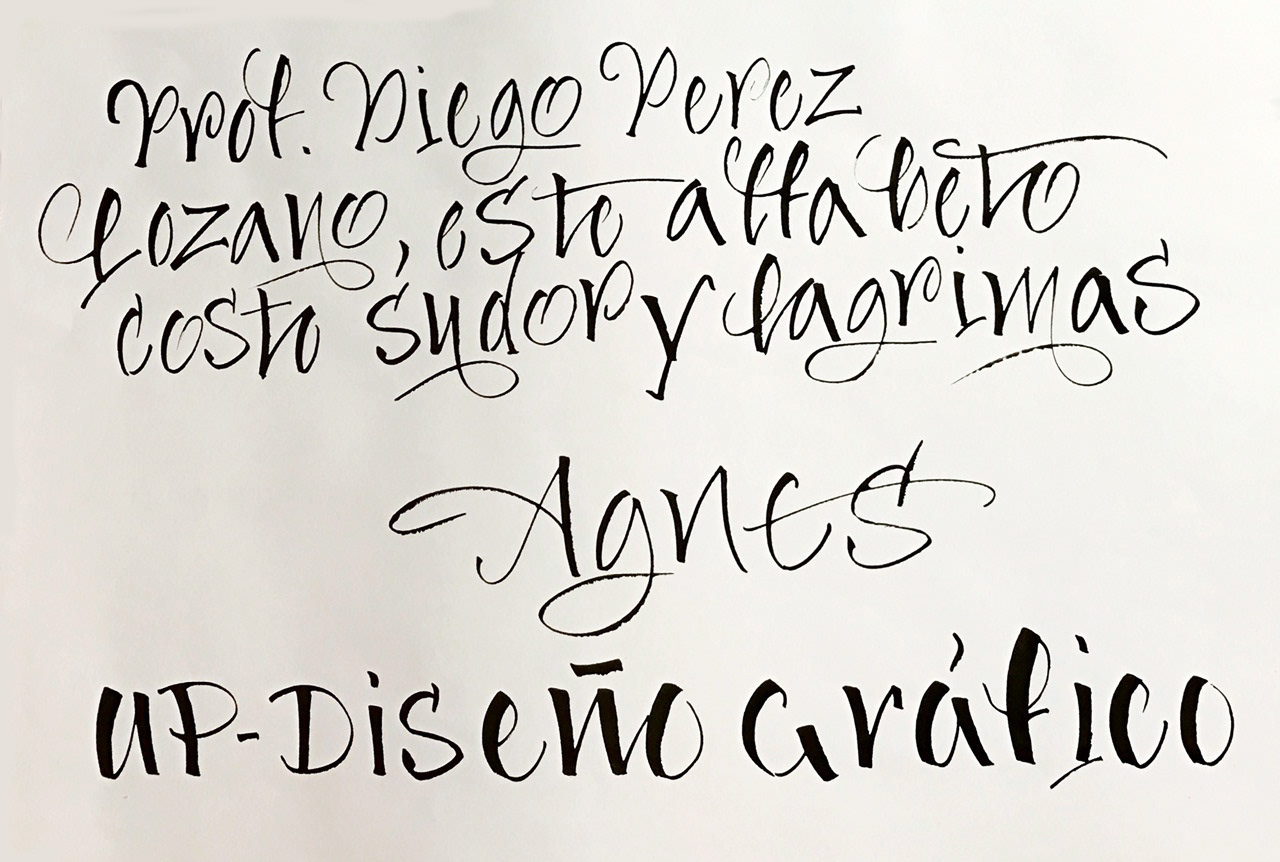 Prof. Diego Perez
Lozano, este alfabeto
costo sudor y lagrimas
Agnes
UP-Diseño Gráfico